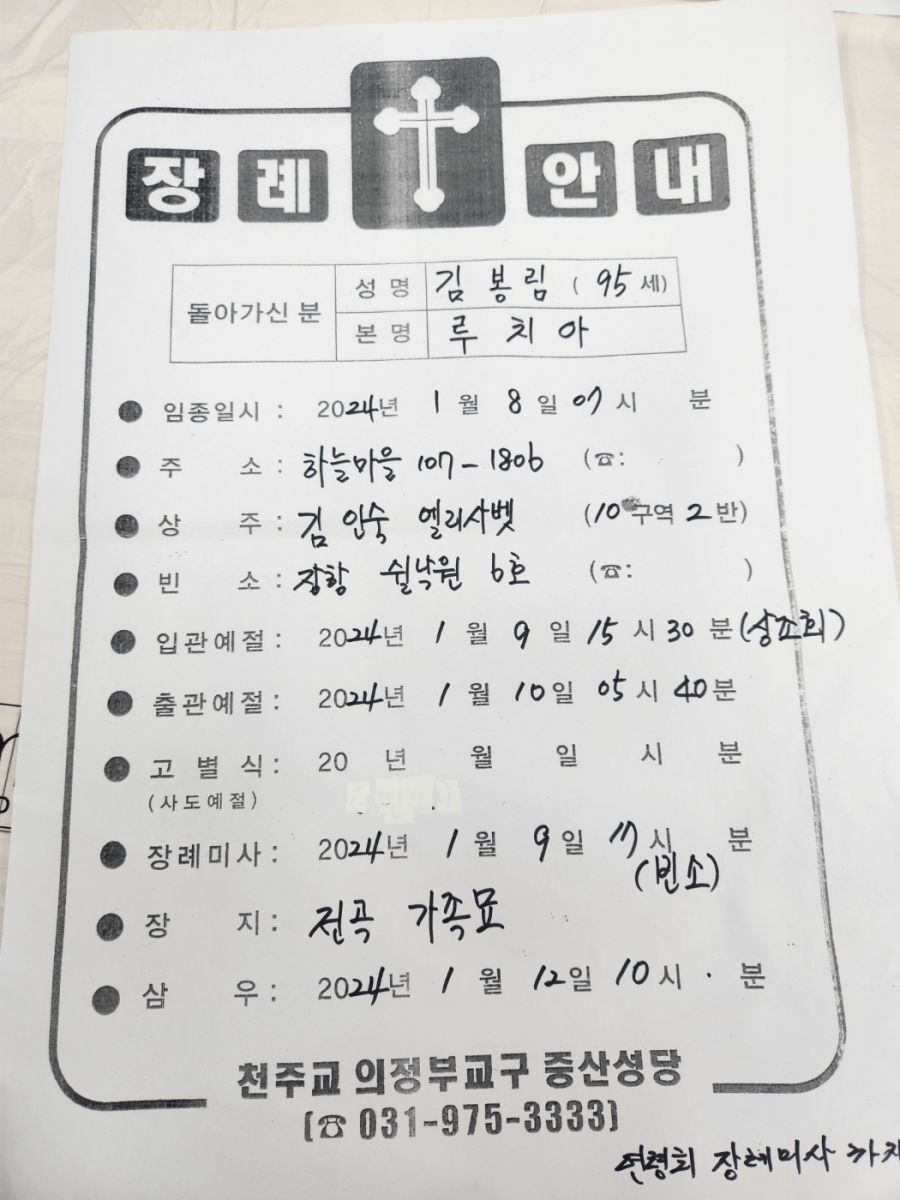 장례 안내
돌아가신 분
성 명 김 봉 림 ( 95 세)
본 명 루 치 아
● 임종일시 : 2024년 1 월 8 일 07 시 분
● 주 소 : 하늘마을 107-1806 (☎: )
● 상 주 : 김 인숙 엘리사벳 (10 구역 2 반)
● 빈 소 : 장항 쉴낙원 6호 (☎: )
● 입관예절 : 2024년 1 월 9 일 15 시 30 분 (상조회)
● 출관예절 : 2024년 1 월 10 일 05 시 40 분
● 고 별 식 : 20 년 월 일 시 분
(사도예절)
● 장례미사 : 2024년 1 월 9 일 17 시 분
(빈소)
● 장 지 : 전곡 가족묘
● 삼 우 : 2024년 1 월 12일 10 시 · 분
천주교 의정부교구 중산성당
(☎ 031-975-3333)
연령회 장례미사 까지